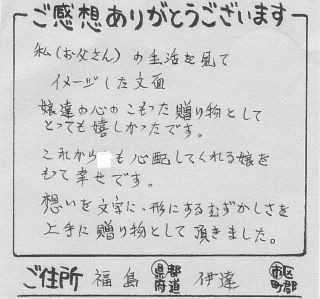 ご感想ありがとうございます
私(お父さん)の生活を見て
イメージした文面
娘達の心のこもった贈り物として
とっても嬉しかったです。
これからも心配してくれる娘を
もって幸せです。
想いを文字に、形にするむずかしさを
上手に贈り物として頂きました。
ご住所 福島 都道府県 伊達 市区町郡